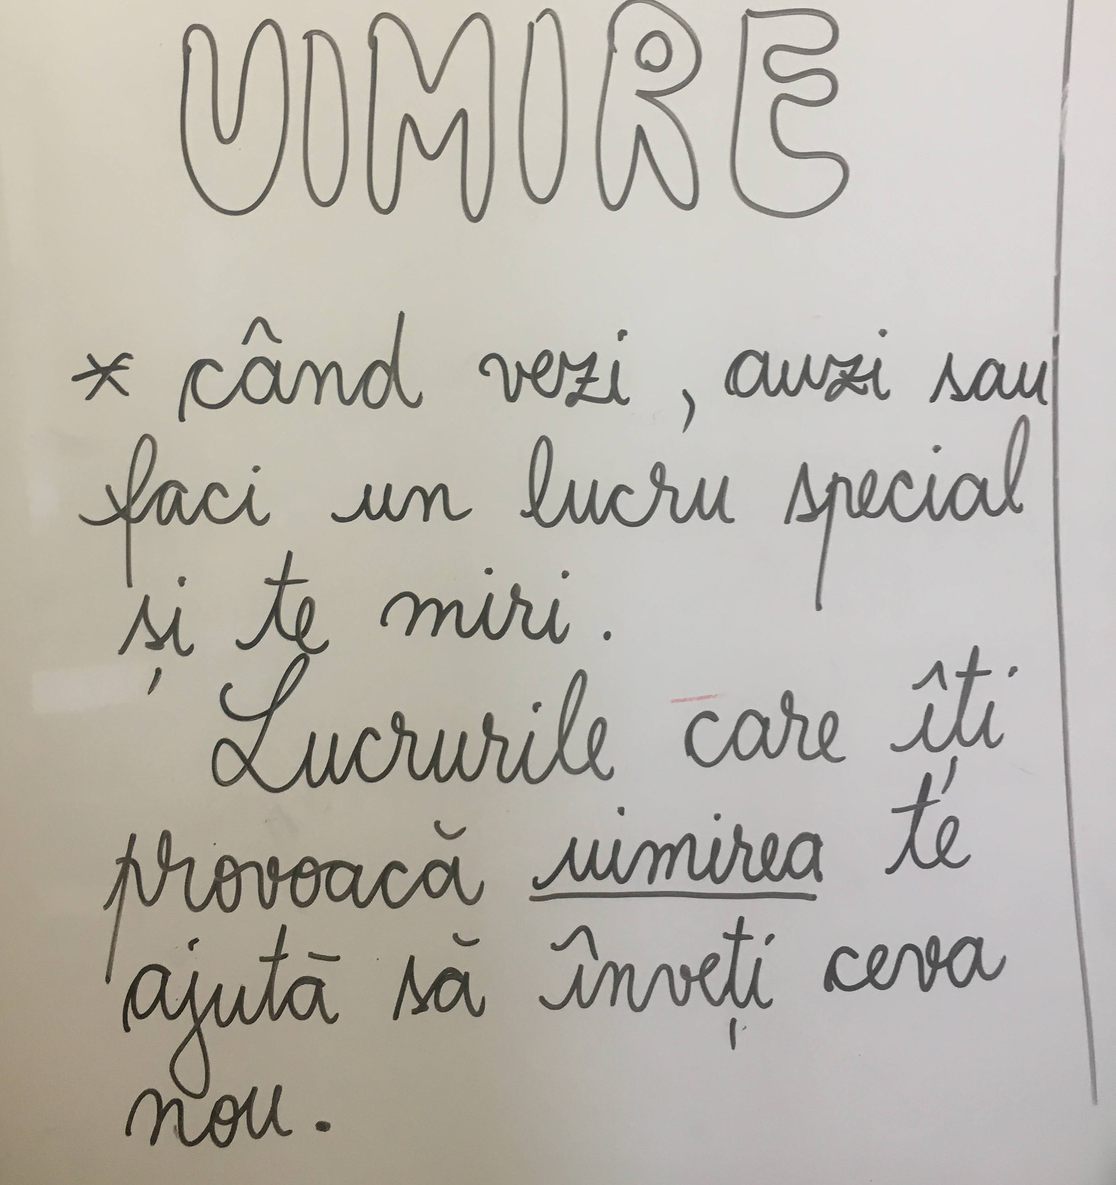 UIMIRE
* când vezi, auzi sau
faci un lucru special
și te miri.
Lucrurile care îți
provoacă uimirea te
ajută să înveți ceva
nou.